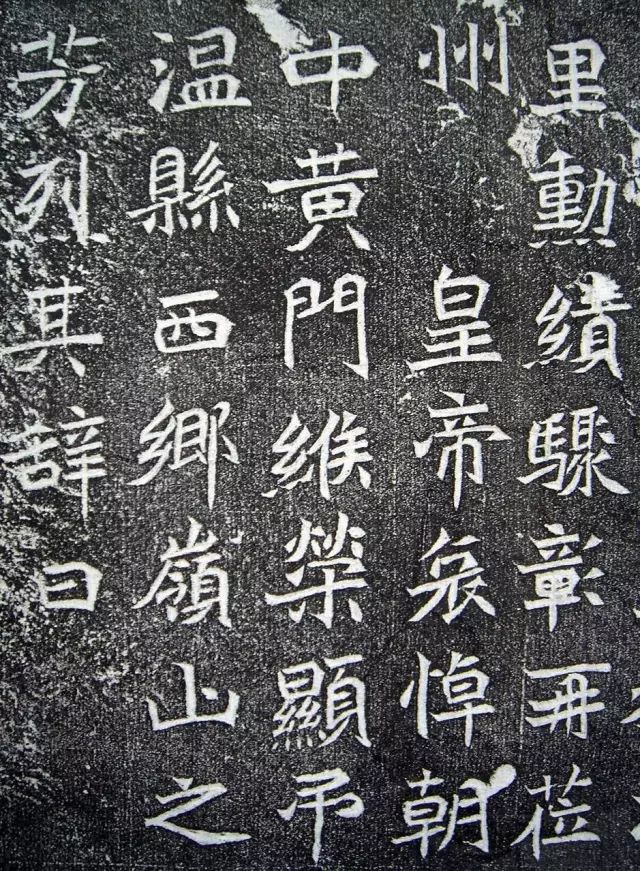 里勳績驟彰再莅
州 皇帝哀悼朝
中黄門緱榮顯弔
温縣西鄉嶺山之
芳烈其辭曰